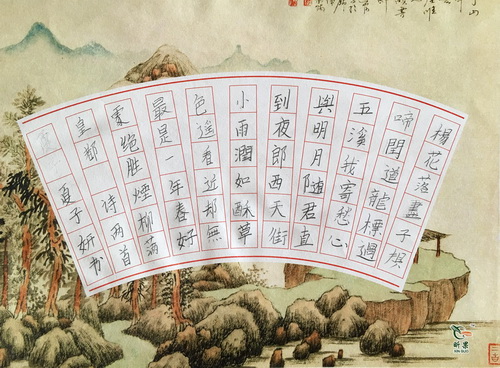 楊花落盡子規
啼聞道龍標過
五溪我寄愁心
與明月随君直
到夜郎西天街
小雨潤如酥草
色遥看近却無
最是一年春好
處绝勝煙柳滿
皇都 诗两首
夏子妍书
昕果
XIN GUO